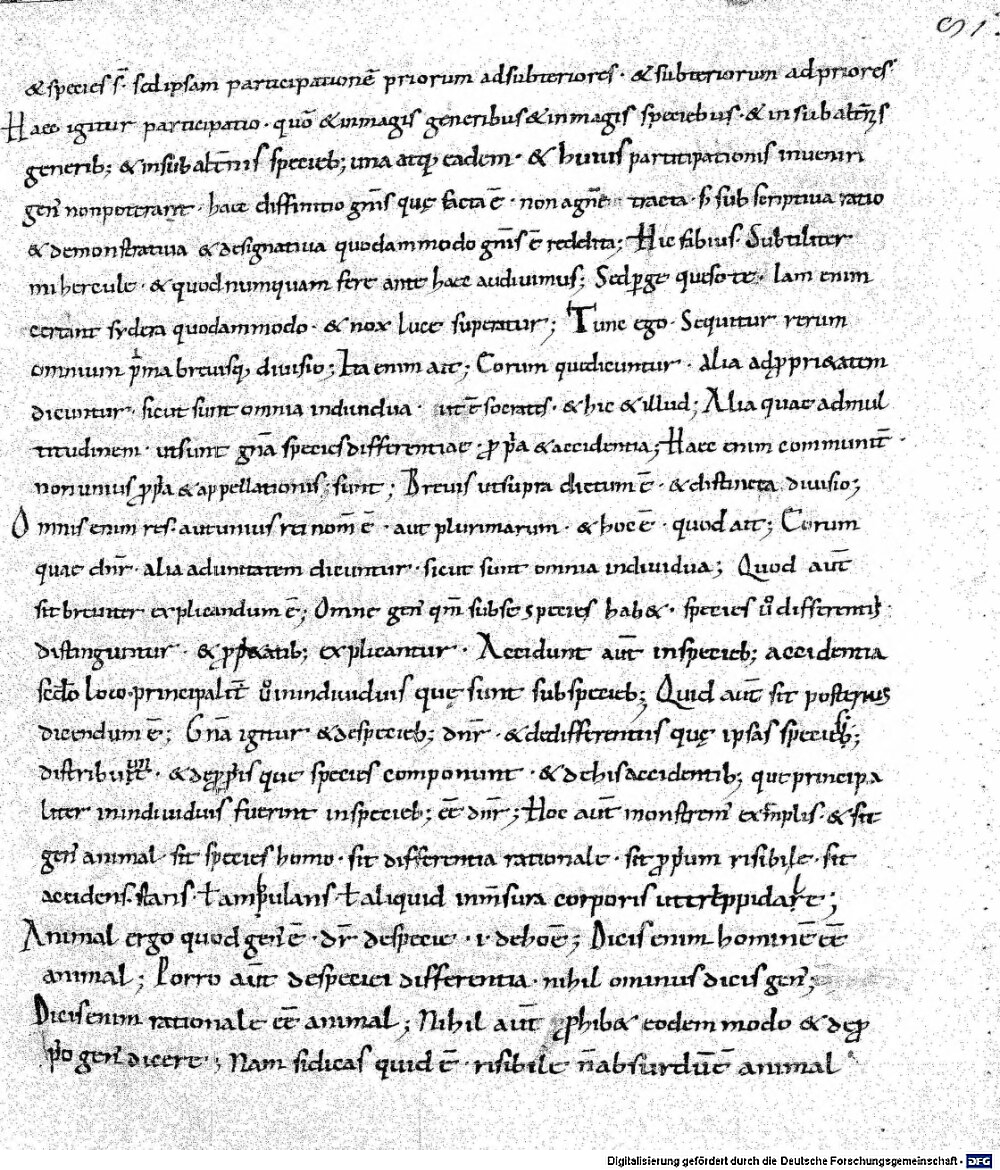 51.
& species s̄. sed ipsam participationē priorum ad subteriores. & subteriorum ad priores
Haec igitur participatio. quō & in magis generibus & in magis speciebus. & in subalt̄nis
generib; & in subalt̄nis specieb; una atq; eadem. & huius participationis inveniri
gen' non poterat. haec diffinitio gn̄is quę facta ē. non a gn̄e tracta. s; subscriptiva ratio
& demonstrativa & designativa quodammodo gn̄is ē reddita; Hic fabius. Subtiliter
mihercule. & quod numquam fere ante haec audivimus; Sed p̱ge quęso te. Iam enim
certant sydera quodammodo. & nox luce superatur; Tunc ego. Sequitur rerum
omnium p'ma brevisq; divisio; Ita enim ait; Eorum quę dicuntur. Alia ad p̱pri&atem
dicuntur. sicut sunt omnia individua. ut ē socrates. & hic & illud; Alia quae ad mul
titudinem. ut sunt gn̄a species differentiae. p̱p'a & accidentia; Haec enim communit̄.
non unius p̱p'a & appellationis sunt; Brevis ut supra dictum ē. & distincta divisio;
Omnis enim res. aut unius rei nom̄ ē. aut plurimarum. & hoc ē. quod ait; Eorum
quae dn̄r. alia ad unitatem dicuntur. sicut sunt omnia individua; Quod aūt
sit breviter explicandum ē; Omne gen' qm̄ sub se species hab&. species ū differentiis.
distinguntur. & p̱p'&atib; explicantur. Accidunt aūt in specieb; accidentia
sc̄do loco. principalit̄ ū in individuis quę sunt sub specieb; Quid aūt sit posterius
dicendum ē; Gn̄a igitur & de specieb; dn̄r. & de differentiis quę ipsas specieb;
distribuunt. & de p̱p'is quę species componunt. & de his accidentib; quę principa
liter in individuis fuerint in specieb; ēē dn̄r; Hoc aūt monstrem' exemplis. & sit
gen' animal. sit species homo. sit differentia rationale. sit p̱p'um risibile. sit
accidens. stans. ł ambulans. ł aliquid in m̄sura corporis
Animal ergo quod gen' ē. dr̄ de specie. i. de hoē; Dicis enim hominē ēē
animal; Porro aūt de speciei differentia. nihil ominus dicis gen';
Dicis enim rationale ēē animal; Nihil aūt p̱hib& eodem modo & de p̱
p'o gen' dicere; Nam si dicas quid ē. risibile n̄ absurdū ē animal
Digitalisierung gefördert durch die Deutsche Forschungsgemeinschaft - DFG